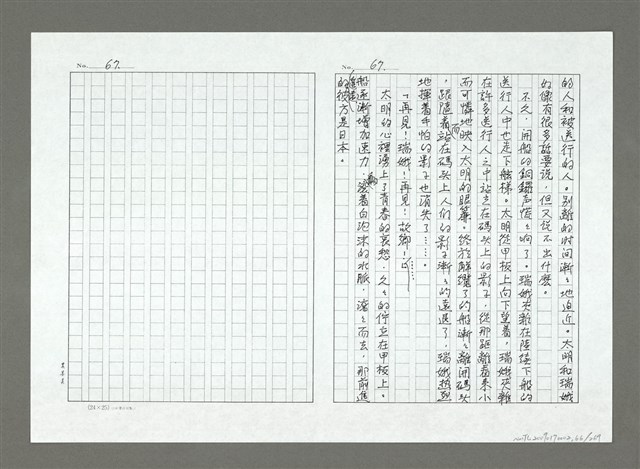 No. 67.
的人和被送行的人。別離的时间漸々地迫近。太明和瑞娥
好像有很多話要说，但又说不出什麼。
不久，開船的銅鑼声慌々响了。瑞娥夾雜在陸續下船的
送行人中也走下舷梯。太明從甲板上向下望着，瑞娥夾雜
在許多送行人之中站立在碼头上的影子，從那距離看来小
而可憐地映入太明的眼簾。終於解纜了的船漸々離開碼头
，跟隨着而站在碼头上人们的影子漸々的遠退了，瑞娥熱烈
地揮着手帕的影子也消失了……。
「再見！瑞娥！再見！故鄉！……」
太明的心裡湧上了青春的哀愁，久々的停立在甲板上。
船逐漸增加速力，滾着白泡沫的水脈，滾々而去，那前進
的彼方是日本。
No. 67.
(25×20)